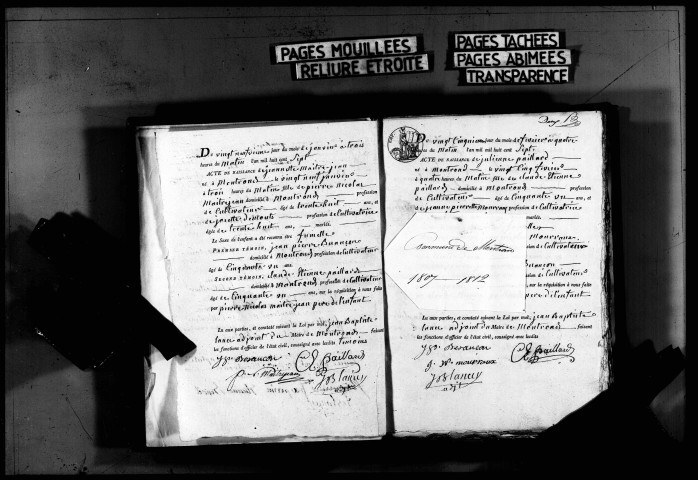 PAGES MOUILLEES
RELIURE ETROITE
PAGES TACHEES
PAGES ABIMEES
TRANSPARENCE
Du vingt neuvieme jour du mois de janvier à trois
heures du Matin l'an mil huit cent Sept
ACTE DE NAISSANCE de jeannette Maitrejean
né à Montrond le vingt neuf janvier
à trois heures du Matin fille de pierre Nicolas
Maitrejean domicilié à Montrond profession
de Cultivateur âgé de trente huit ans, et
de profession de Cultivatrice
âgée de trente huit ans, mariés.
Le Sexe de l'enfant a été reconnu être femelle
PREMIER TÉMOIN, jean pierre Besançon
domicilié à Montrond profession de Cultivateur
âgé de Cinquante un ans
SECOND TÉMOIN, claude Etienne paillard
domicilié à Montrond profession de Cultivateur
âgé de Cinquante un ans, sur la réquisition à nous faite
par pierre Nicolas maitrejean pere de l'enfant
Lu aux parties, et constaté suivant la Loi par moi, jean Baptiste
adjoint du Maire de Montrond faisant
les fonctions d'officier de l'état civil, soussigné avec lesdits Temoins
JP Besançon
CE Paillard
Du vingt Cinquieme jour du mois de fevrier à quatre
heures du Matin l'an mil huit cent Sept
ACTE DE NAISSANCE de julienne paillard
né à Montrond le vingt Cinq fevrier
à quatre heures du Matin fille de claude Etienne
paillard domicilié à Montrond profession
de Cultivateur âgé de Cinquante un ans, et
de jeanne pierrette profession de Cultivatrice
mariés.
Commune de Montrond
1807 1812
Besançon
de Cultivateur
sur la réquisition à nous faite
pere de l'enfant
Lu aux parties, et constaté suivant la Loi par moi, jean Baptiste
adjoint du Maire de Montrond faisant
les fonctions d'officier de l'état civil, soussigné avec lesdits
JP Besançon
CE Paillard